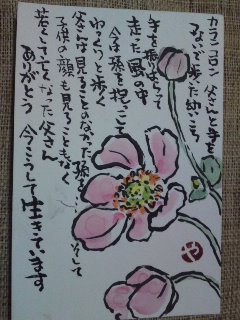 カランコロン 父さんと手を
つないで歩った幼いころ
手を振はらって
走った風の中
今は孫を抱っこして
ゆっくりと歩く
父さんは見ることのなかった孫を…そして
子供の顔も見ることもなく
若くして亡くなった父さん
ありがとう 今こうして生きています
や